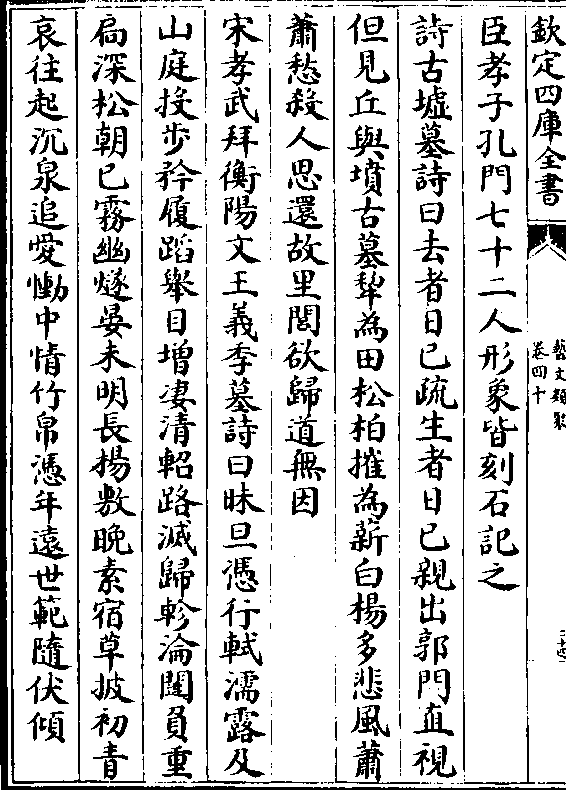 欽定四庫全書
藝文類聚
卷四十
臣孝子孔門七十二人形象皆刻石記之
詩古墟墓詩曰去者日已疏生者日已親出郭門直視
但見丘與墳古墓犂為田松柏摧為薪白楊多悲風蕭
蕭愁殺人思還故里閭欲歸道無因
宋孝武拜衡陽文王義季墓詩曰昧旦憑行軾濡露及
山庭投步矜履蹈舉目增凄清軺路滅歸軫淪闥負重
扃深松朝已霧幽燧晏未明長揚敷晚素宿草披初青
哀往起沉泉追愛慟中情竹帛憑年遠世範隨伏傾